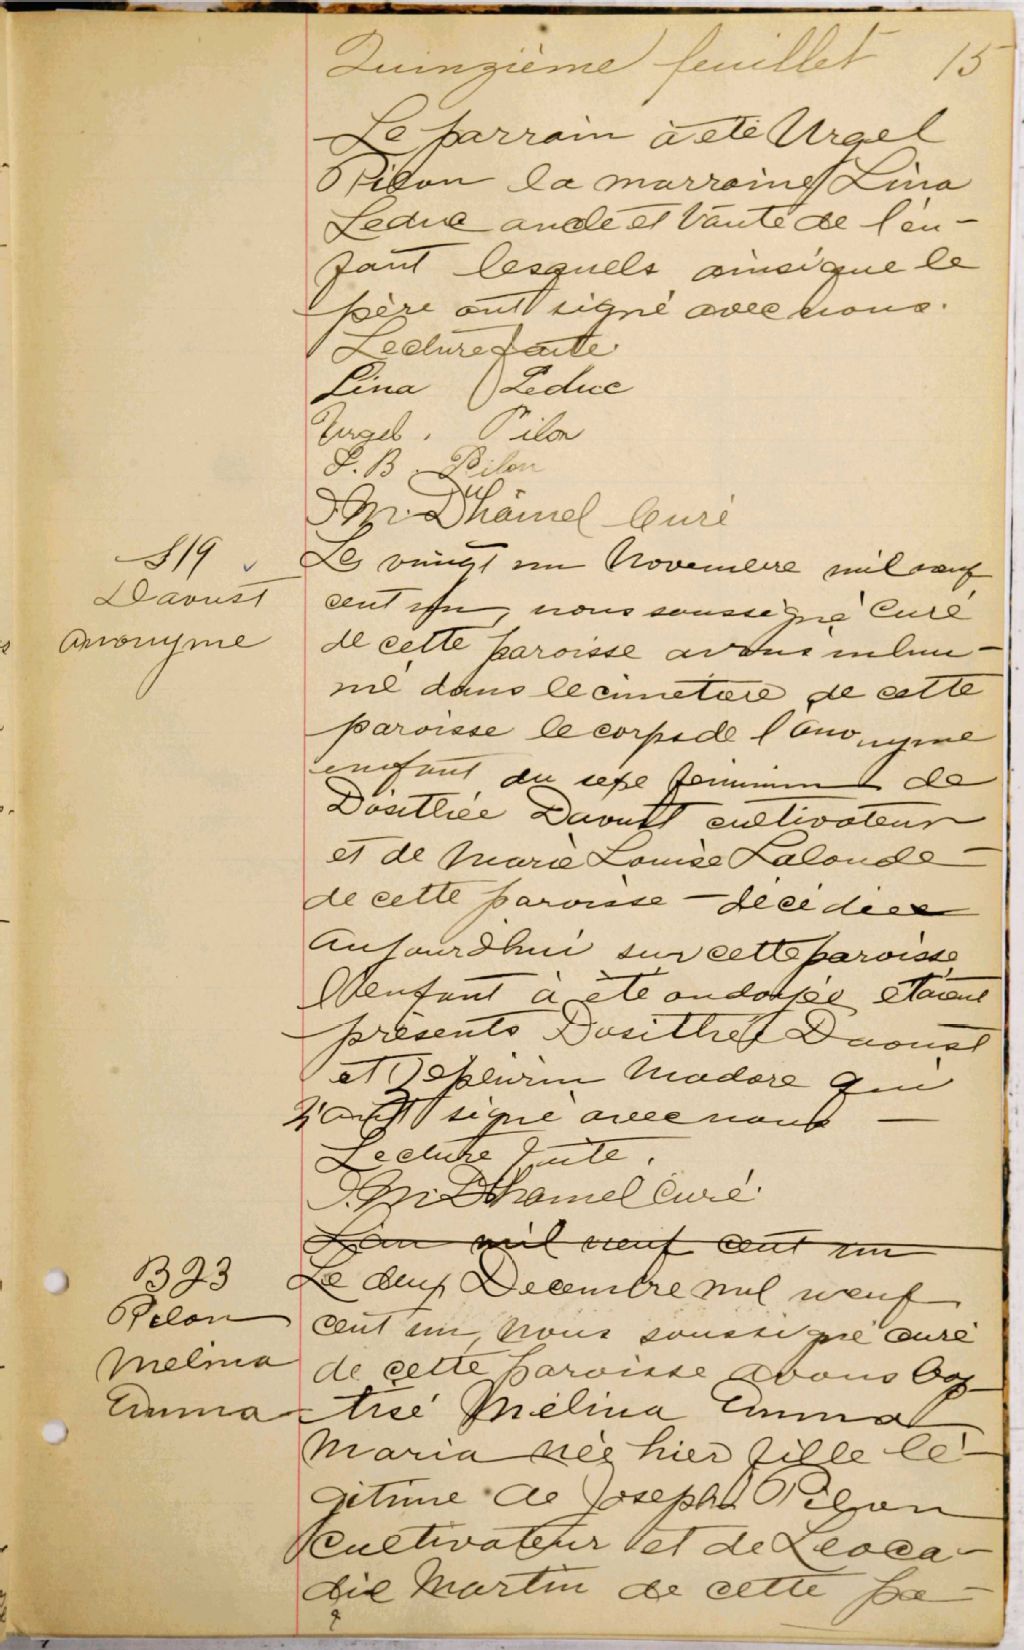 Quinzième feuillet 15
Le parrain à été Urgel
Pilon la marraine Lina
Leduc oncle et tante de l'en-
fant lesquels ainsi que le
père ont signé avec nous.
Lecture faite.
Lina Leduc
Urgel. Pilon
J. B. Pilon
J. M. Duhamel Curé
S19
Daoust
anonyme
Le vingt un Novembre mil neuf
cent un, nous soussigné Curé
de cette paroisse avons inhu-
mé dans le cimetière de cette
paroisse le corps de l'anonyme
enfant du sexe feminin de
Dosithée Daoust cultivateur
et de Marie Louise Lalonde
de cette paroisse - décédée
Aujourdhui sur cette paroisse
l'enfant à été ondoyée, étaient
présents Dosithée Daoust
et Madore qui
n'ont signé avec nous -
Lecture faite.
J. M. Duhamel Curé.
L'an mil neuf cent un
B23
Pilon
Melina
Emma
Le deux Decembre mil neuf
cent un, nous soussigné curé
de cette paroisse avons bap-
tisé Mélina Emma
Maria née hier fille lé-
gitime de Joseph Pilon
cultivateur et de Leoca-
die Martin de cette pa-